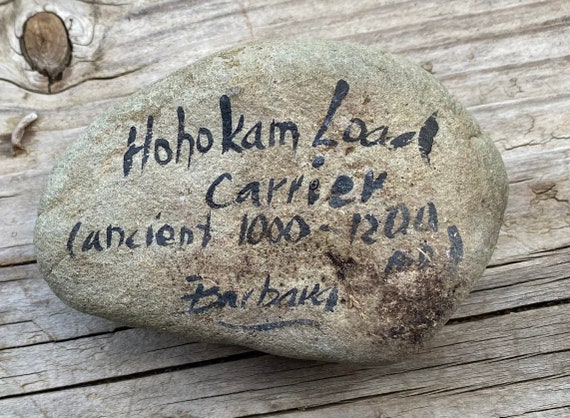 Hohokam Load
Carrier
(ancient 1000 - 1200
AD)
Barbara